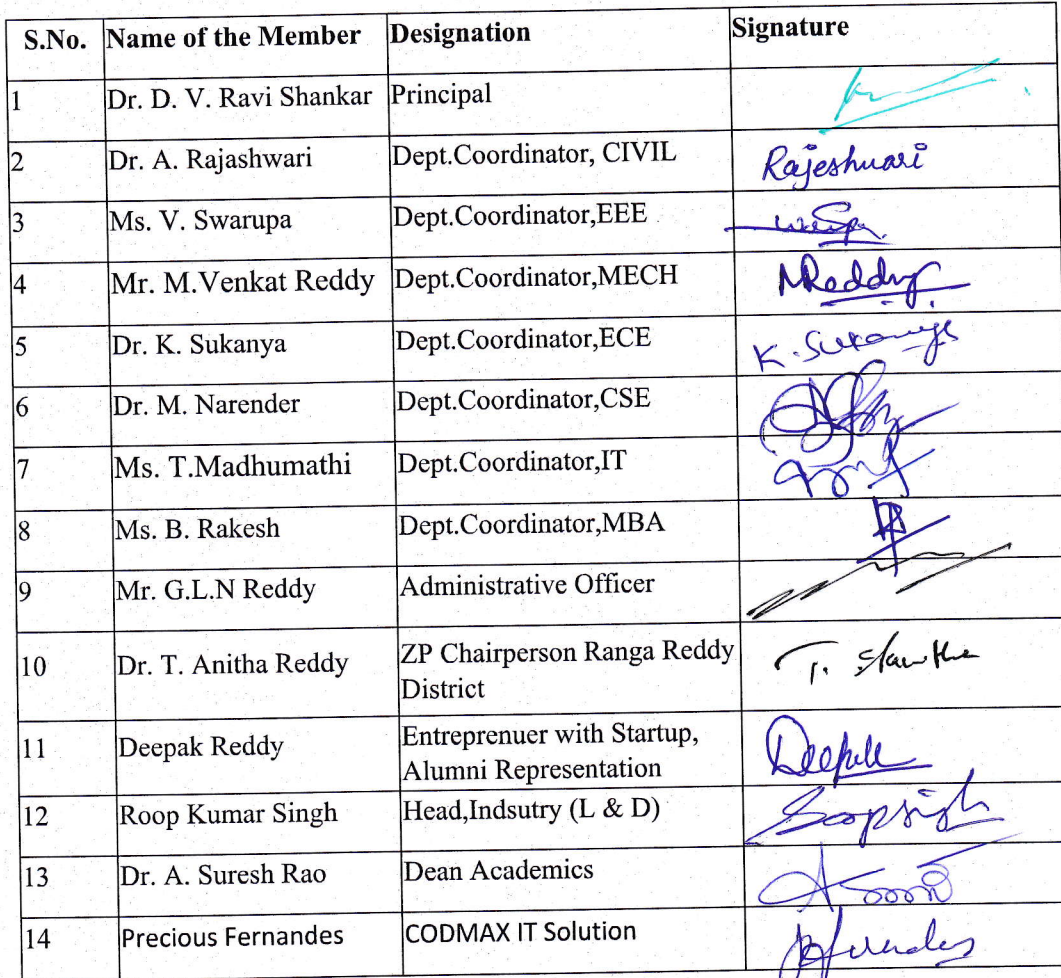 S.No. Name of the Member Designation Signature
1 Dr. D. V. Ravi Shankar Principal
2 Dr. A. Rajashwari Dept.Coordinator, CIVIL Rajeshwari
3 Ms. V. Swarupa Dept.Coordinator,EEE
4 Mr. M.Venkat Reddy Dept.Coordinator,MECH MReddy
5 Dr. K. Sukanya Dept.Coordinator,ECE K. Sukanya
6 Dr. M. Narender Dept.Coordinator,CSE
7 Ms. T.Madhumathi Dept.Coordinator,IT
8 Ms. B. Rakesh Dept.Coordinator,MBA
9 Mr. G.L.N Reddy Administrative Officer
10 Dr. T. Anitha Reddy ZP Chairperson Ranga Reddy T.
District
11 Deepak Reddy Entreprenuer with Startup, Deepak
Alumni Representation
12 Roop Kumar Singh Head,Indsutry (L & D) Roopsingh
13 Dr. A. Suresh Rao Dean Academics
14 Precious Fernandes CODMAX IT Solution